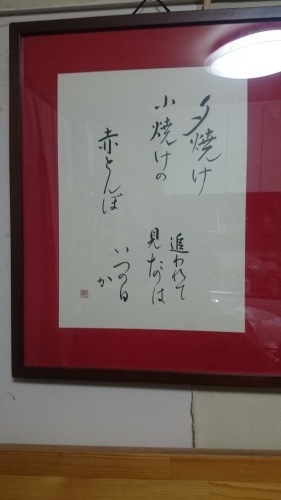 夕焼け
小焼けの
赤とんぼ
追われて
見たのは
いつの日
か